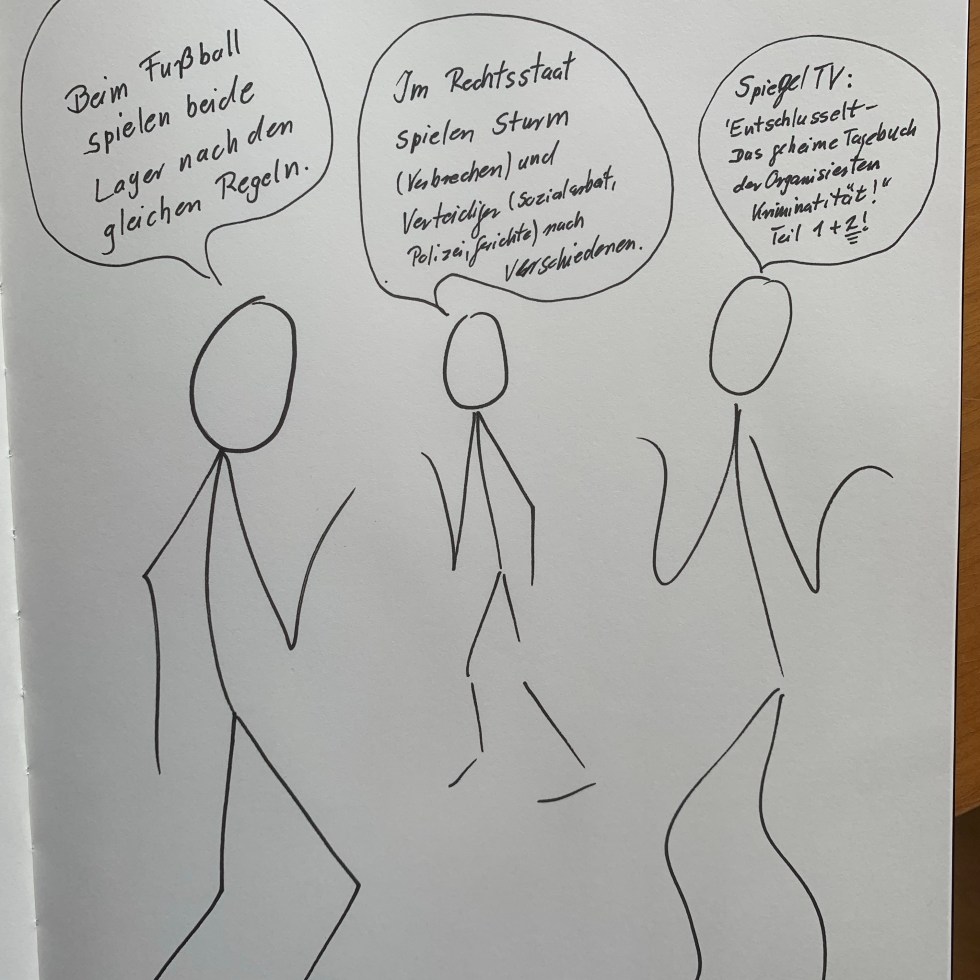 Beim Fußball
spielen beide
Lager nach den
gleichen Regeln.
Im Rechtsstaat
spielen Sturm
(Verbrechen) und
Verteidiger (Sozialarbeit,
Polizei, Gerichte) nach
Verschiedenen.
Spiegel TV:
'Entschlusselt -
Das geheime Tagebuch
der Organisierten
Kriminatität!"
Teil 1+2!